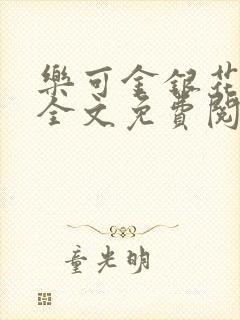 樂可金銀花
全文免費閱
童光明